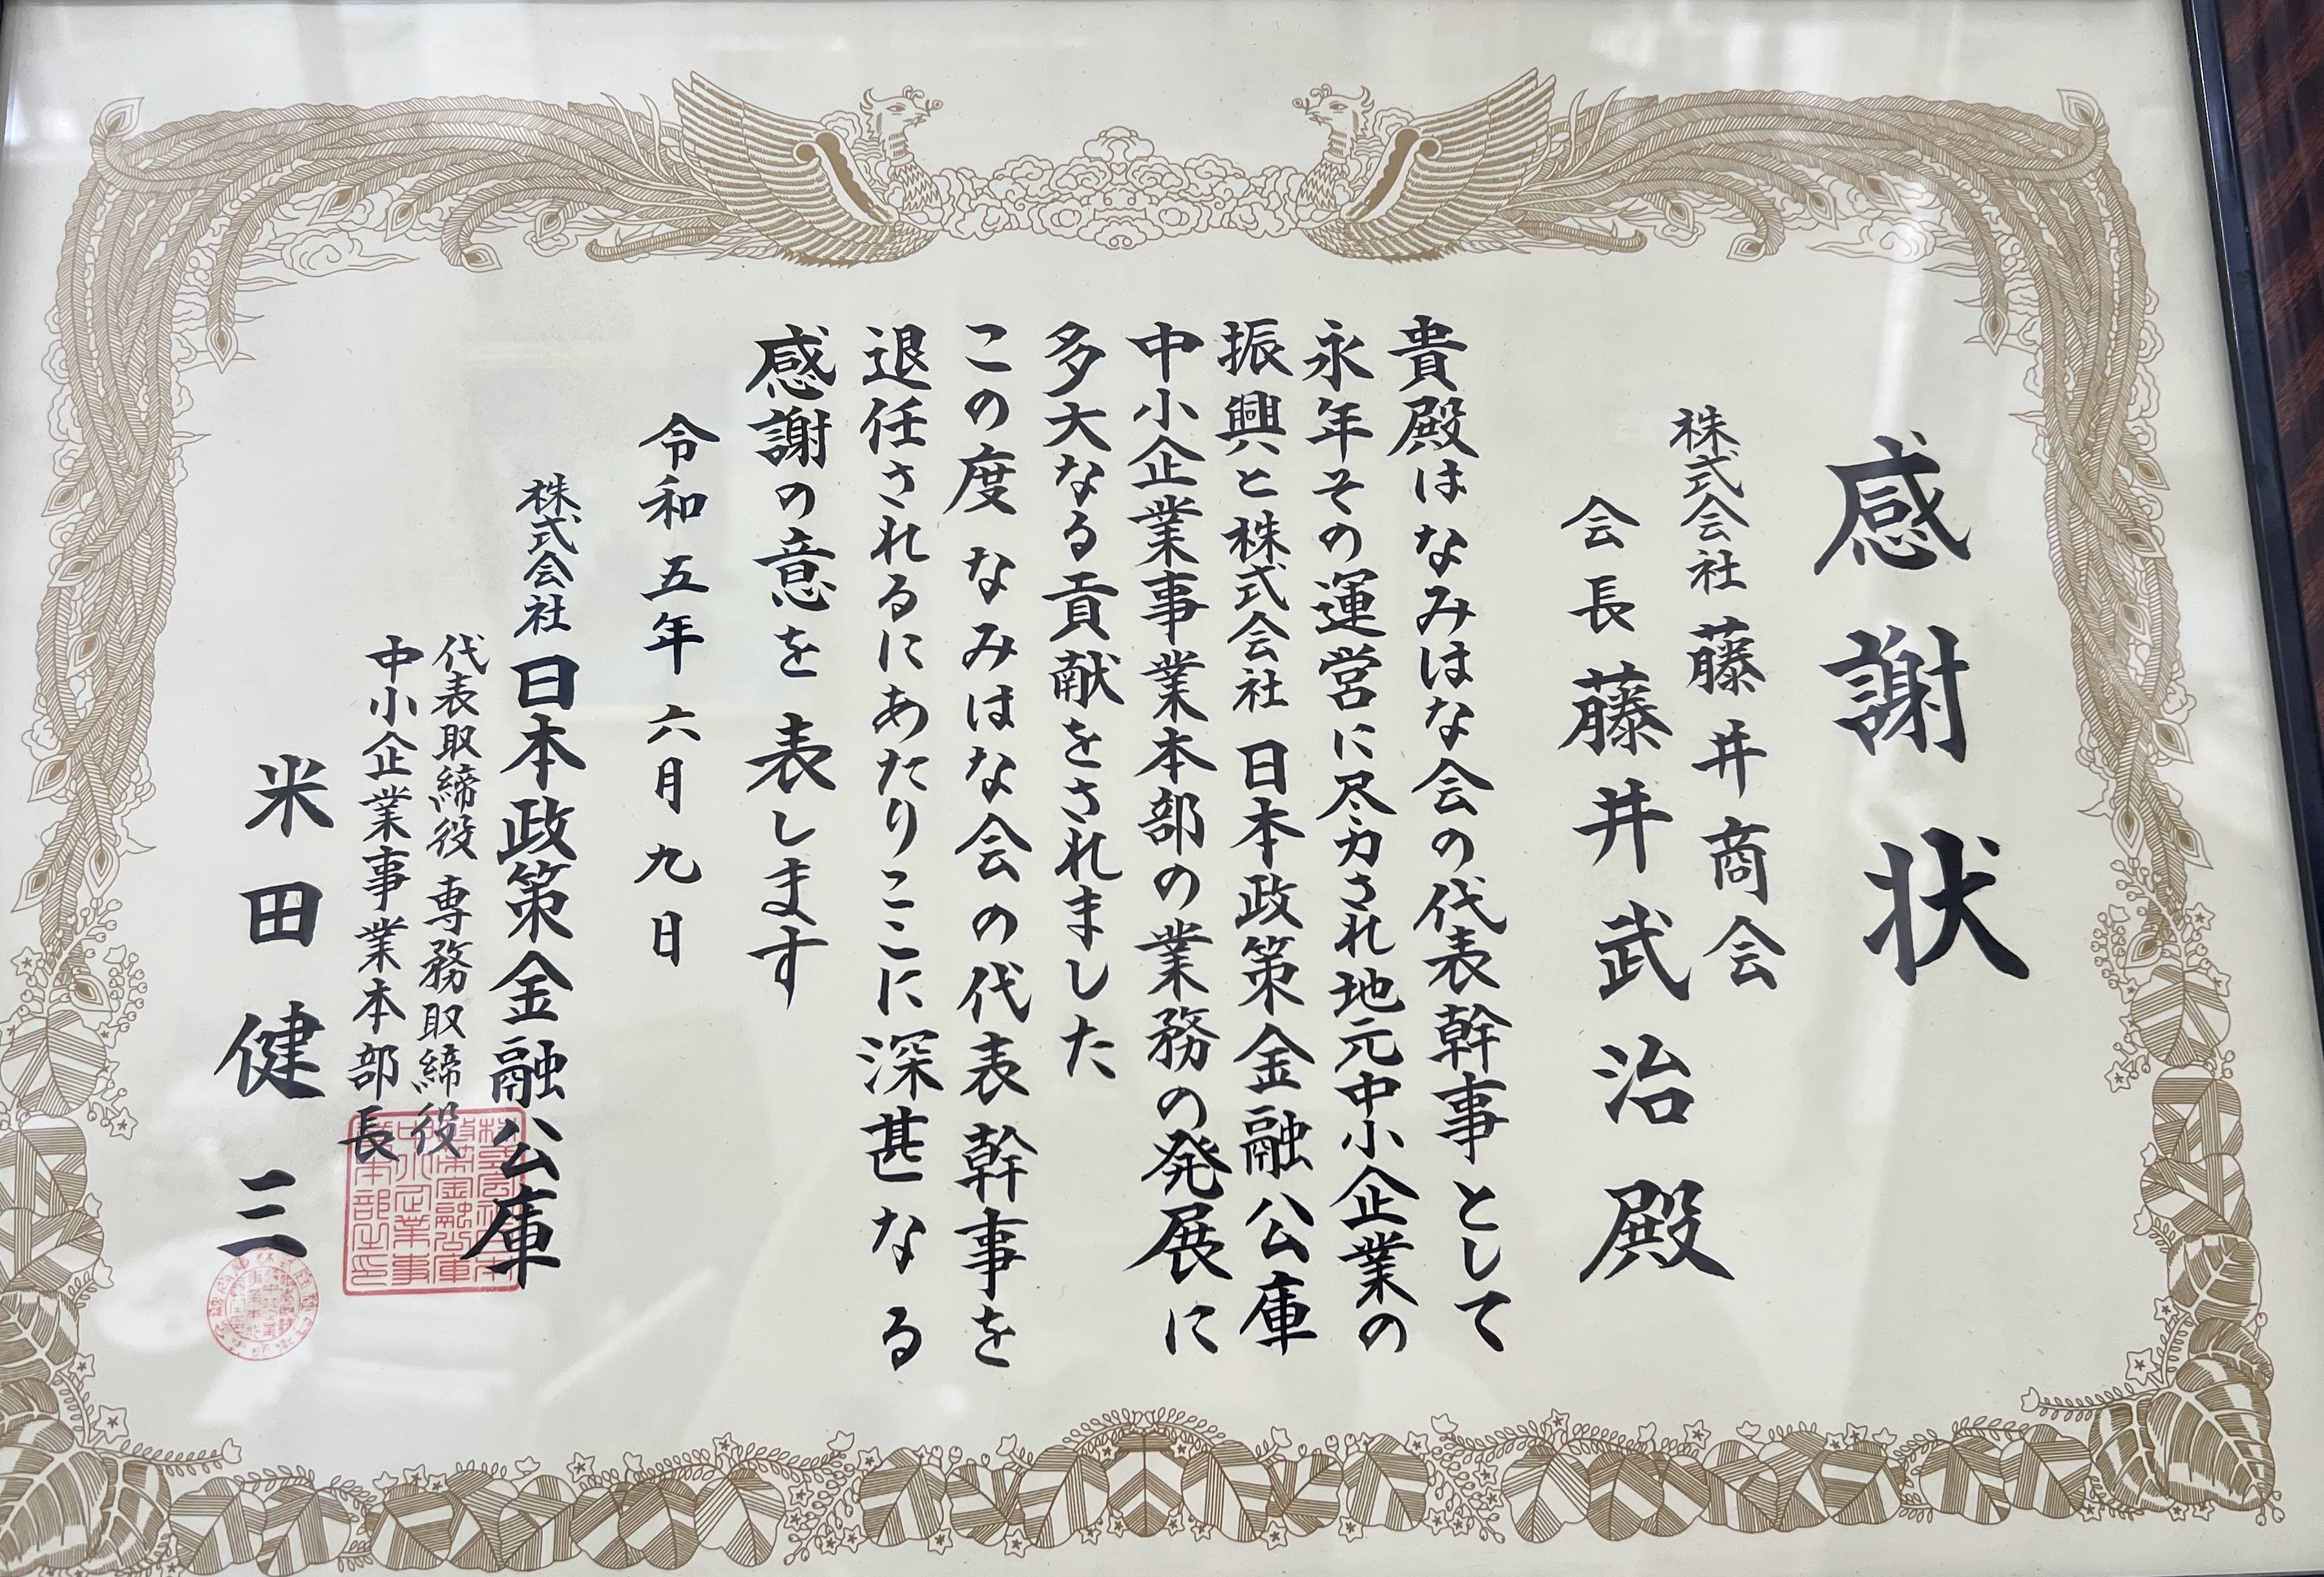 感謝状
株式会社 藤井商会
会長 藤井武治 殿
貴殿はなみはな会の代表幹事として
永年その運営に尽力され地元中小企業の
振興と株式会社日本政策金融公庫
中小企業事業本部の業務の発展に
多大なる貢献をされました
この度なみはな会の代表幹事を
退任されるにあたりここに深甚なる
感謝の意を表します
令和五年六月九日
株式会社日本政策金融公庫
代表取締役専務取締役
中小企業事業本部長
米田健三